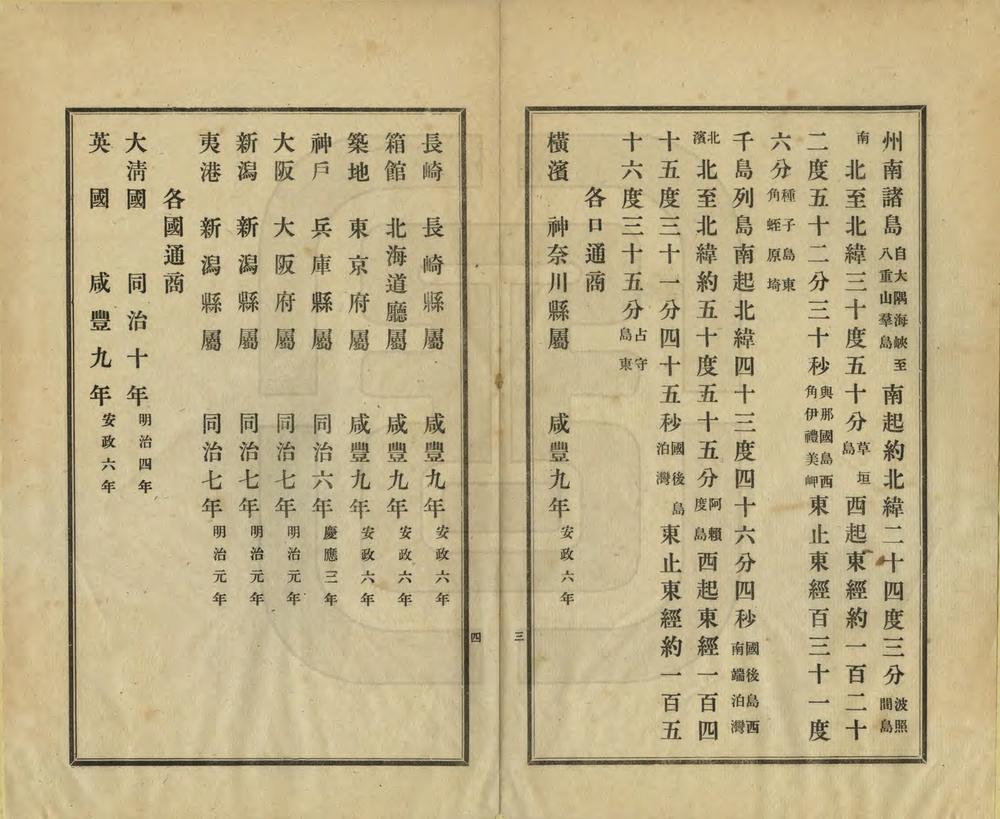 州南諸島自大隅海峽至八重山羣島南起約北緯二十四度三分波照間島
南北至北緯三十度五十分草垣島西起東經約一百二十
二度五十二分三十秒與那國島西角伊禮美岬東止東經百三十一度
六分種子島東角蛭原埼
千島列島南起北緯四十三度四十六分四秒國後島西南端泊灣
北濱北至北緯約五十度五十五分阿賴度島西起東經一百四
十五度三十一分四十五秒國後島泊灣東止東經約一百五
十六度三十五分占守島東
各口通商
橫濱 神奈川縣屬 咸豐九年安政六年
三
四
長崎 長崎縣屬 咸豐九年安政六年
箱館 北海道廳屬 咸豐九年安政六年
築地 東京府屬 咸豐九年安政六年
神戶 兵庫縣屬 同治六年慶應三年
大阪 大阪府屬 同治七年明治元年
新潟 新潟縣屬 同治七年明治元年
夷港 新潟縣屬 同治七年明治元年
各國通商
大淸國 同治十年明治四年
英國 咸豐九年安政六年